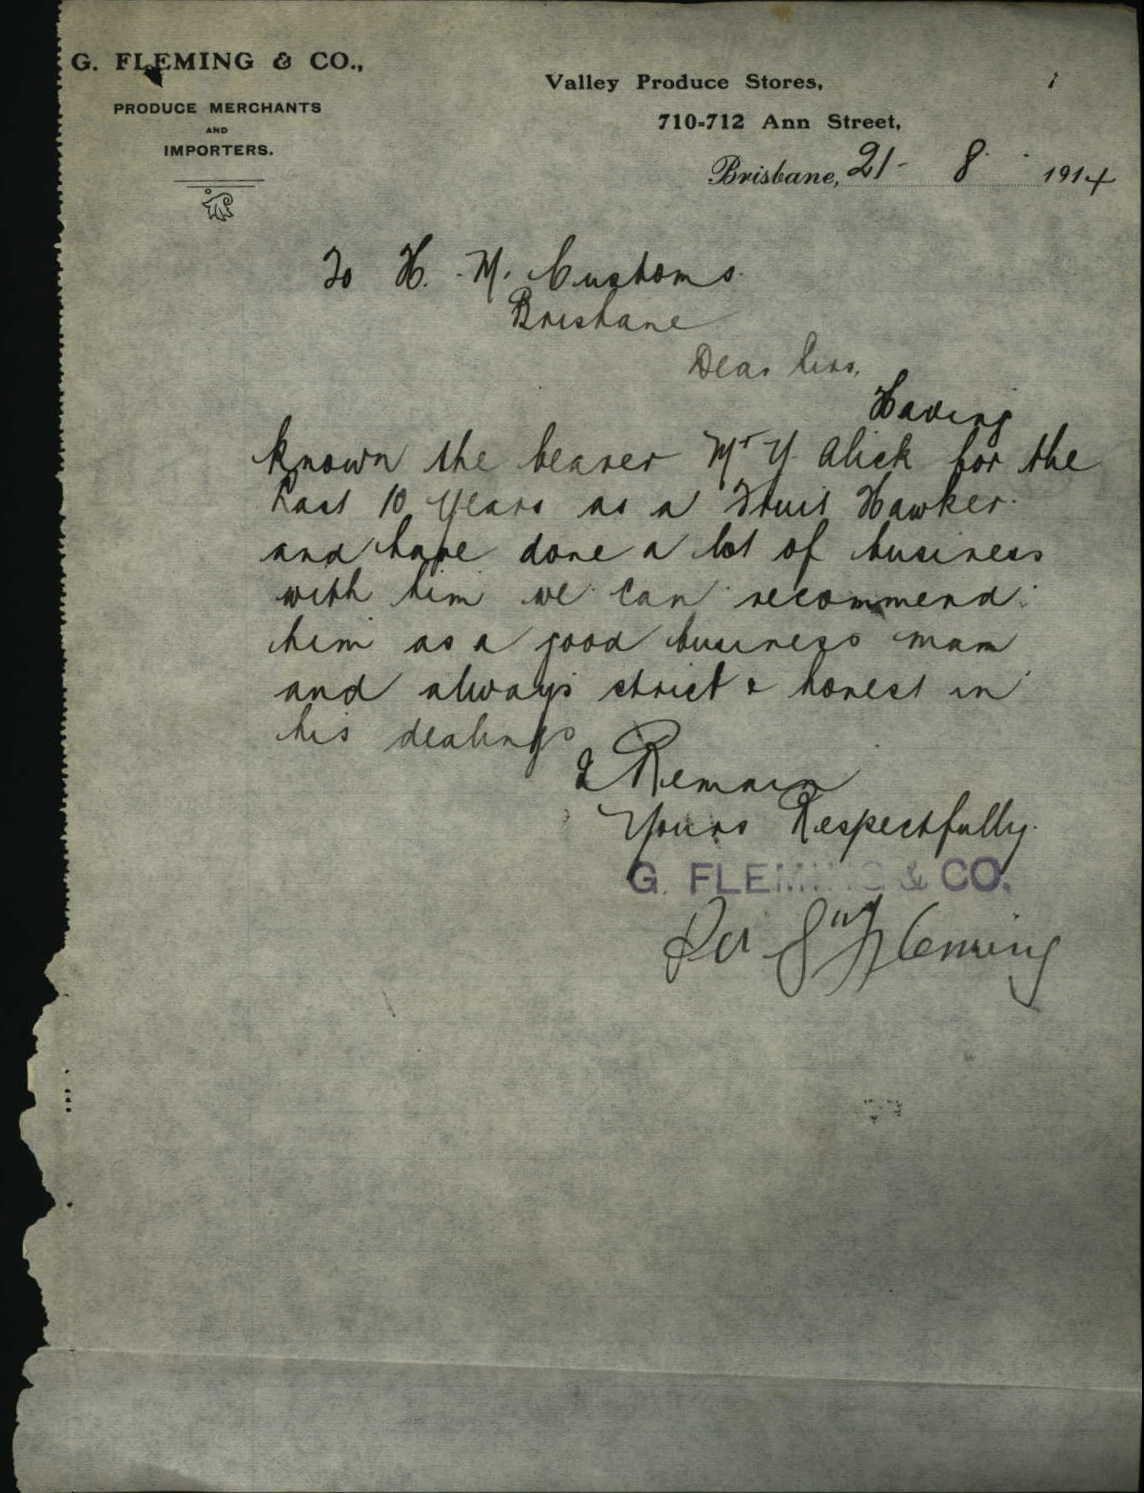 G. FLEMING & CO.,
PRODUCE MERCHANTS
AND
IMPORTERS.
Valley Produce Stores,
710-712 Ann Street,
Brisbane, 21- 8 1914
To H. M. Customs.
Brisbane
Dear Sirs,
Having
known the bearer Mr Y. Alick for the
last 10 years as a Fruit Hawker.
and have done a lot of business
with him we can recommend
him as a good business man
and always strict & honest in
his dealings
I Remain
Yours Respectfully.
G. FLEMING & CO.
Per Fleming